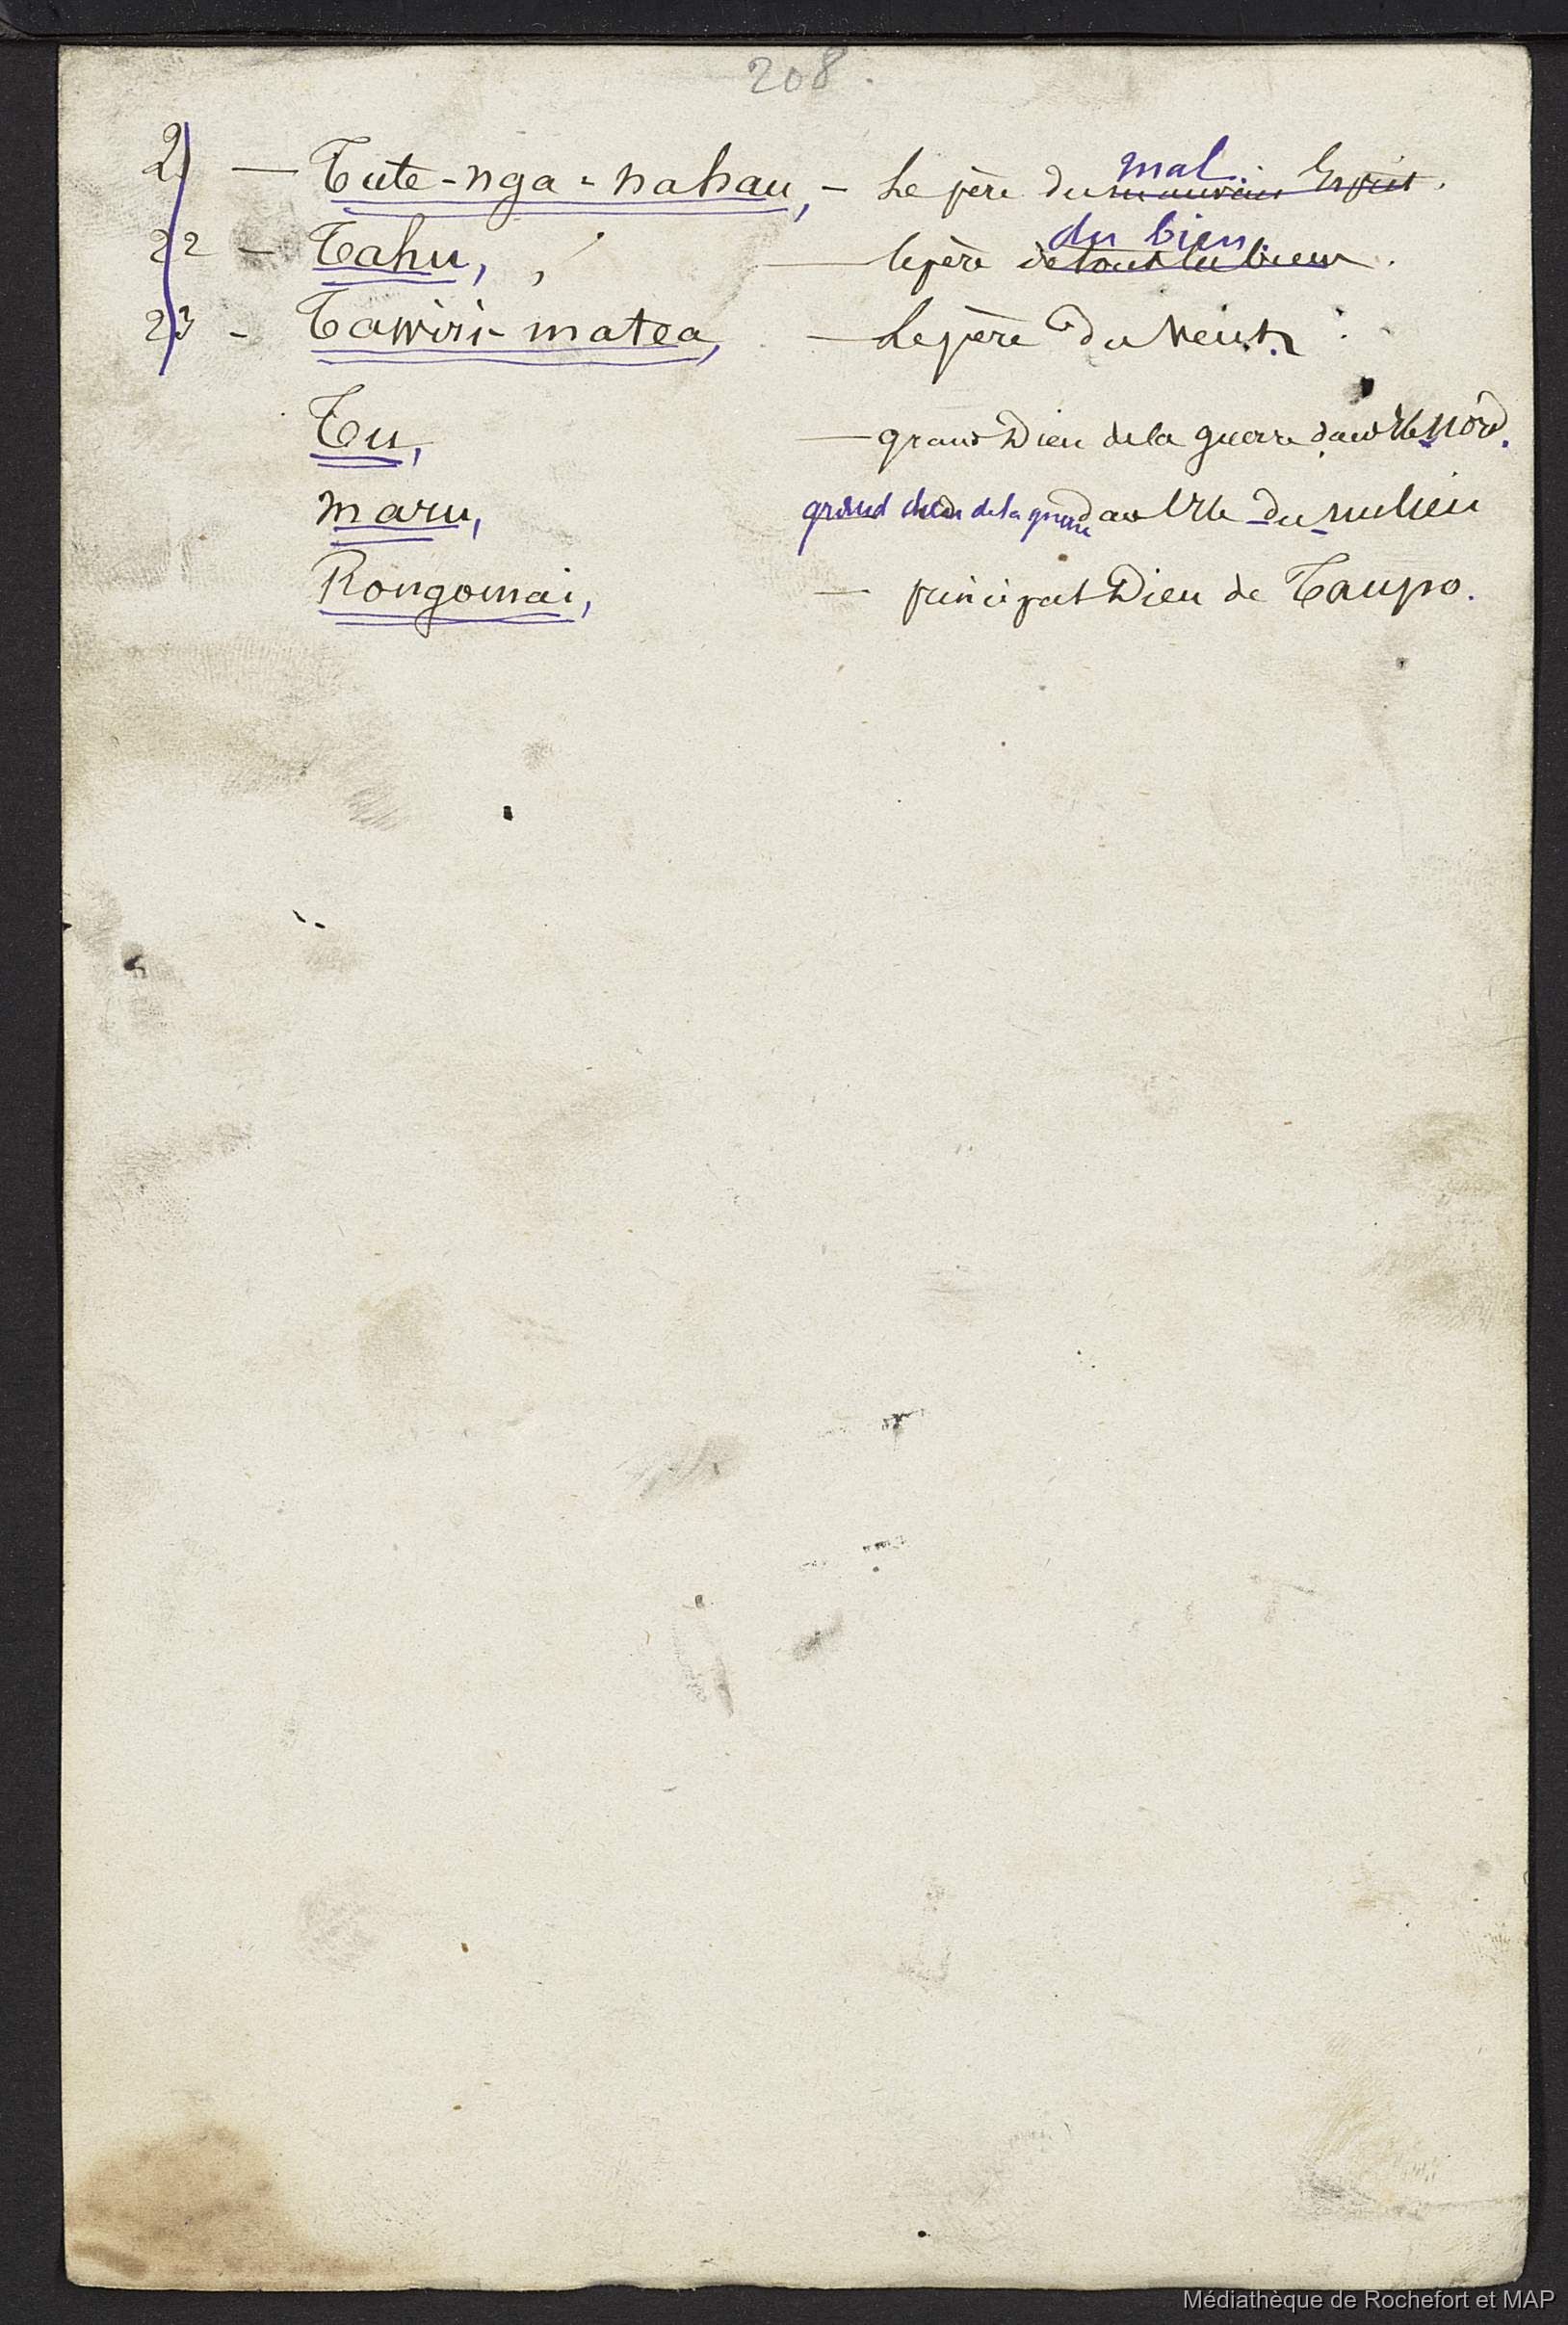 208.
21 — Tute-nga-nahau, — Le père du mauvais Esprit. mal.
22 — Tahu, — le père de tous les biens. du bien.
23 — Tawiri-matea, — Le père du Vent.
Tu, — grand Dieu de la guerre dans l'île nord.
maru, grand dieu de la guerre dans l'île du milieu
Rongomai, — principal Dieu de Taupo.
Médiathèque de Rochefort et MAP